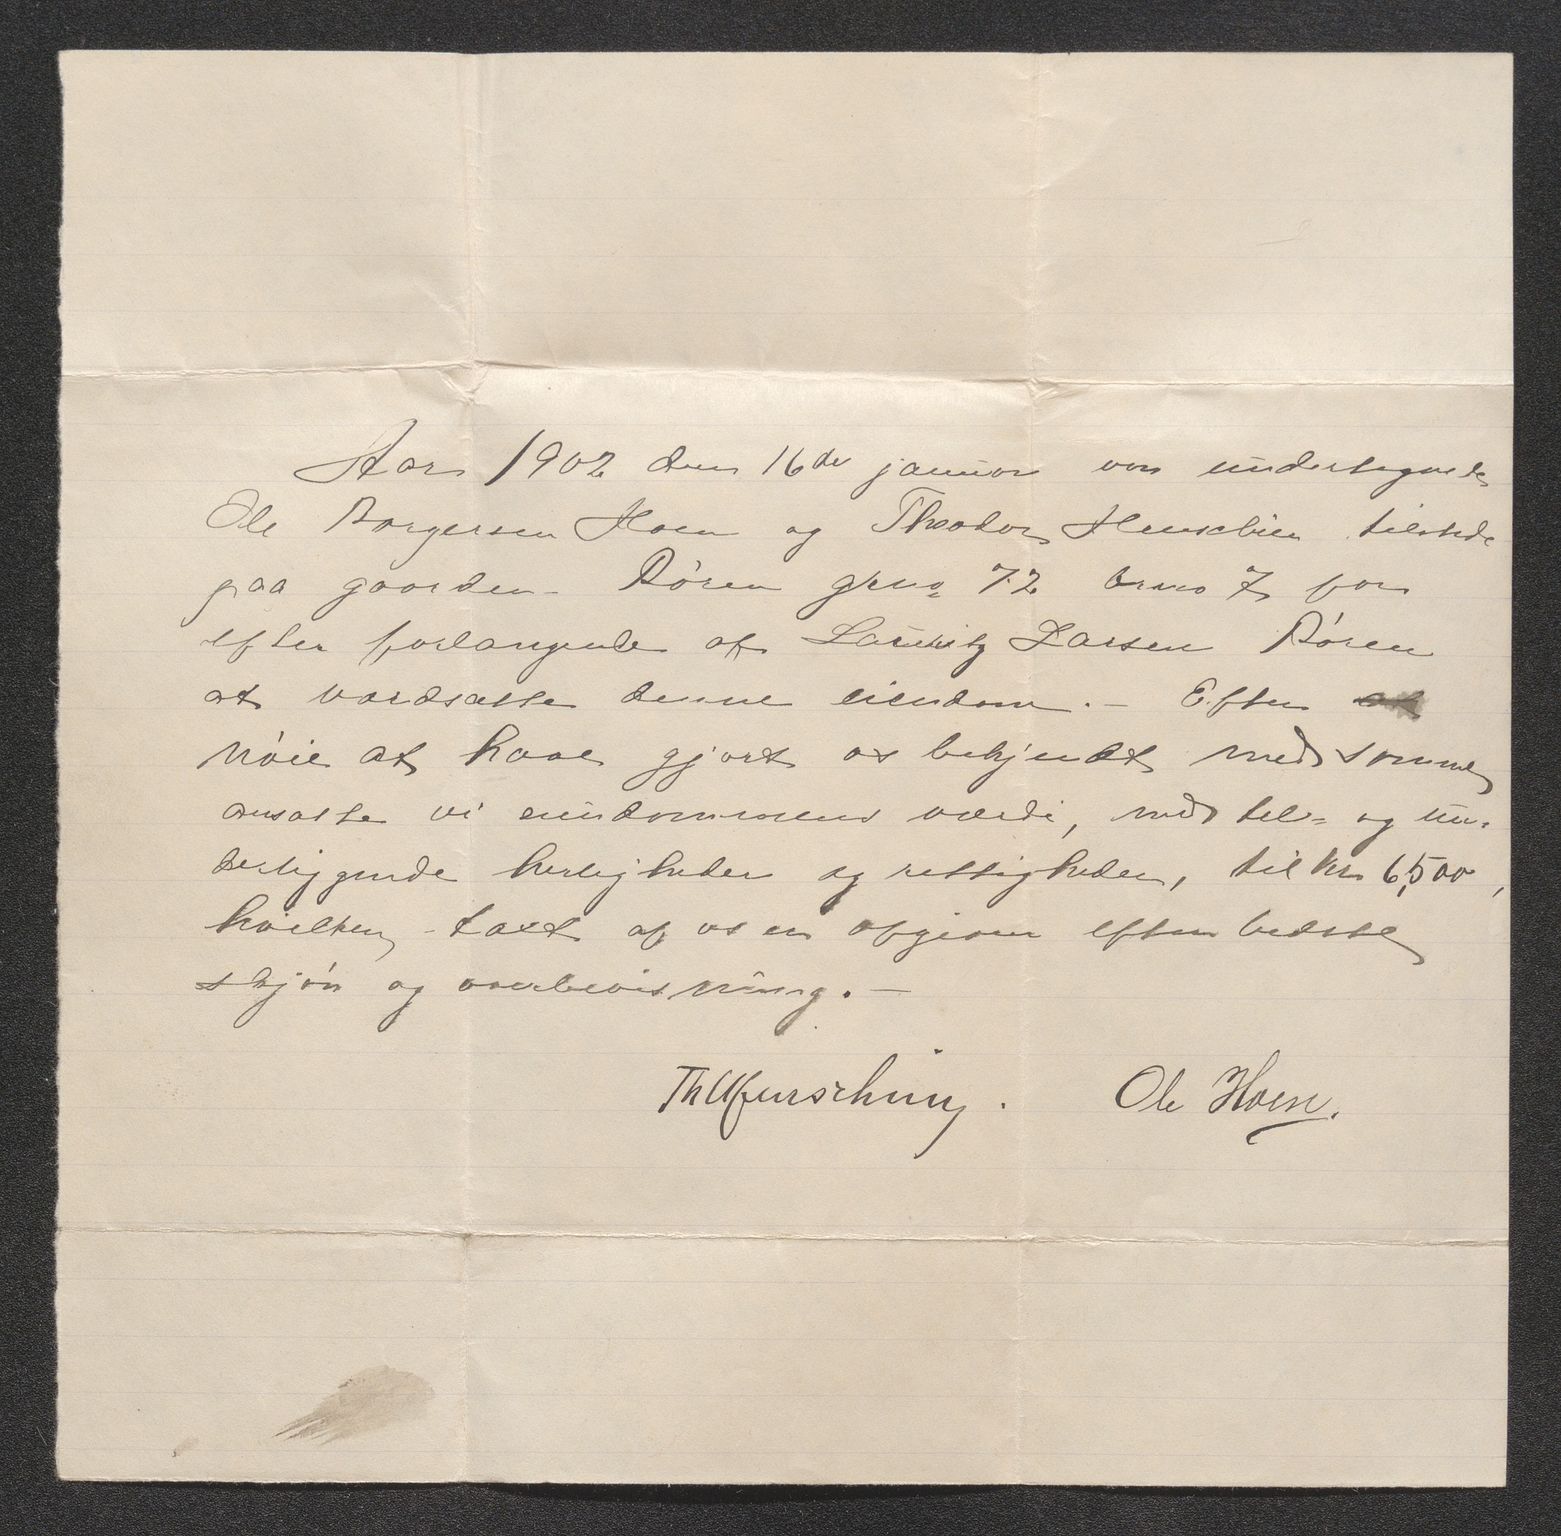 Aar 1902 den 16de januar var undertegnede
Ole Borgersen Hoen og Theodor tilstede
paa gaarden Børen grno 72 brno 7 for
efter forlangende af Lauritz Larsen Børen
at værdsætte denne eiendom. — Efter at
nøie at have gjort os bekjendt med samme
ansatte vi eiendommens værdi, med til- og un-
derliggende herligheder og rettigheder, til kr 6,500,
hvilken taxt af os er afgiven efter bedste
skjøn og overbevisning. —
Ole Hoen.